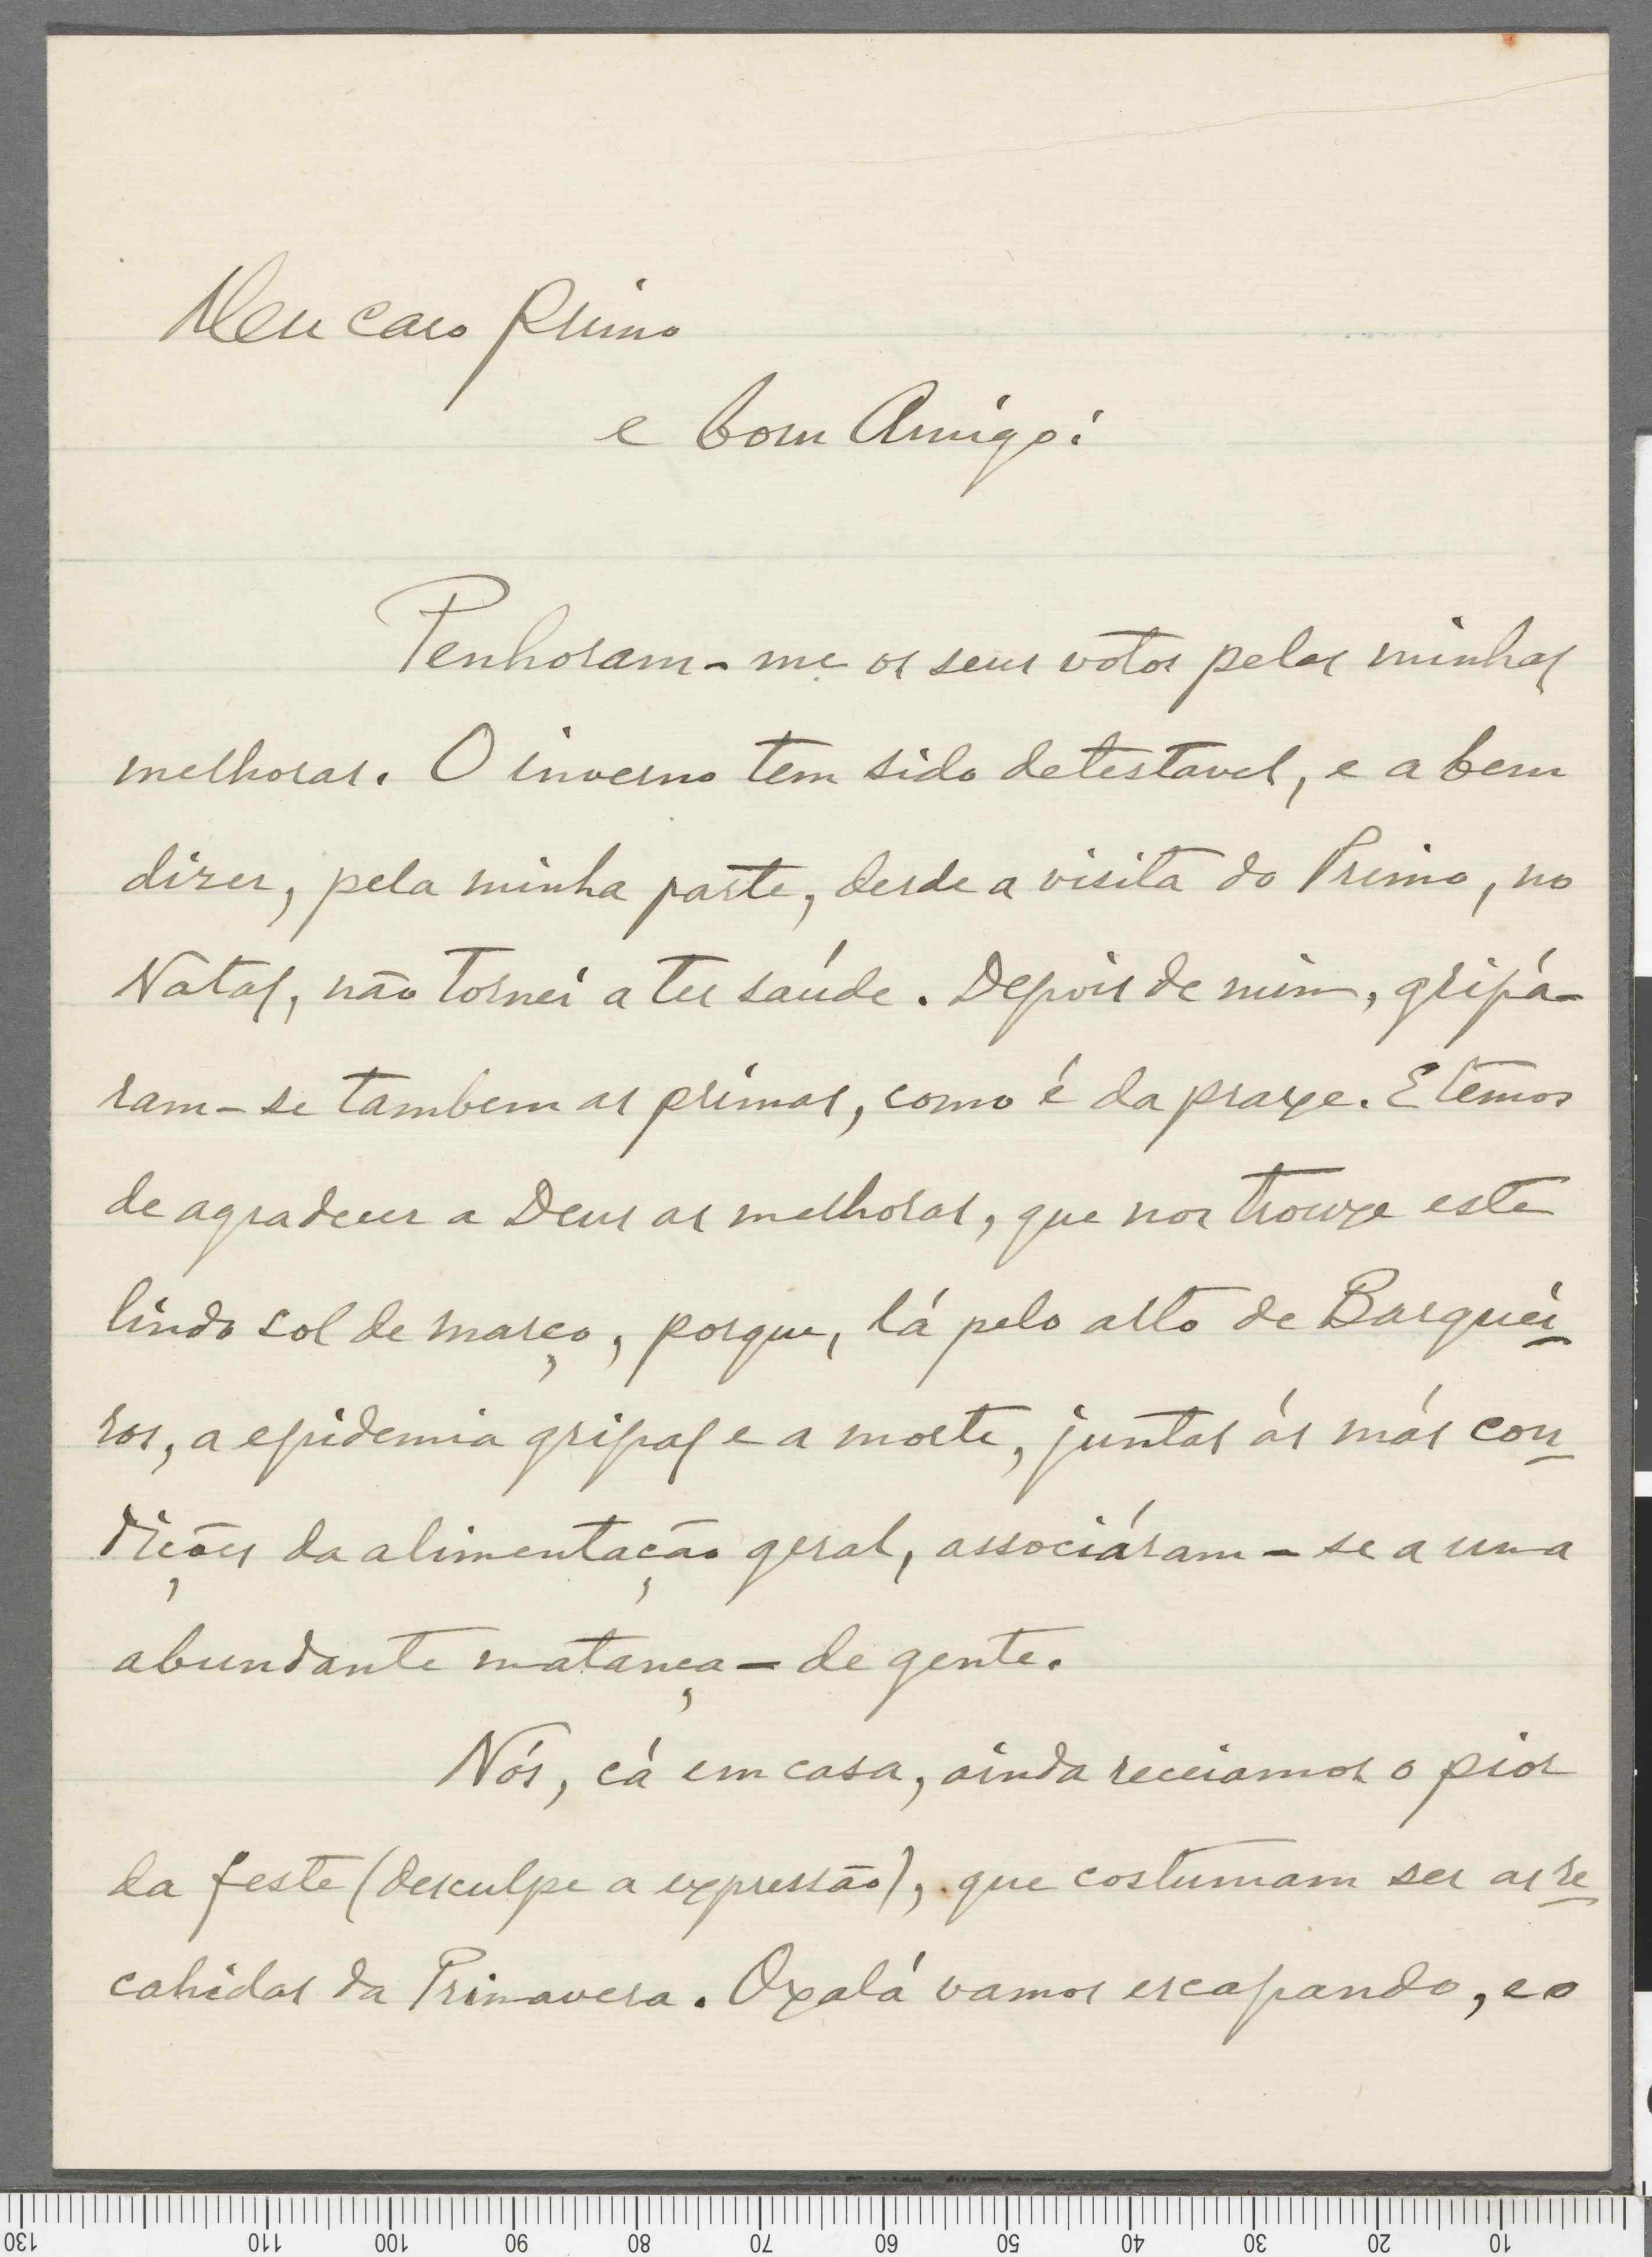 Meu caro Primo
e bom Amigo:
Penhoram-me os seus votos pelas minhas
melhoras. O inverno tem sido detestavel, e a bem
dizer, pela minha parte, desde a visita do Primo, no
Natal, não tornei a ter saúde. Depois de mim, gripá-
ram-se tambem as primas, como é da praxe. E temos
de agradecer a Deus as melhoras, que nos trouxe este
lindo sol de março, porque, lá pelo alto de Barquei-
ros, a epidemia gripal e a morte, juntas ás más con-
dições da alimentação geral, associáram-se a uma
abundante matança - de gente.
Nós, cá em casa, ainda receiamos o pior
da feste (desculpe a expressão), que costumam ser as re-
cahidas da Primavera. Oxalá vamos escapando, e o
130 110 100 90 80 70 60 50 40 30 20 10